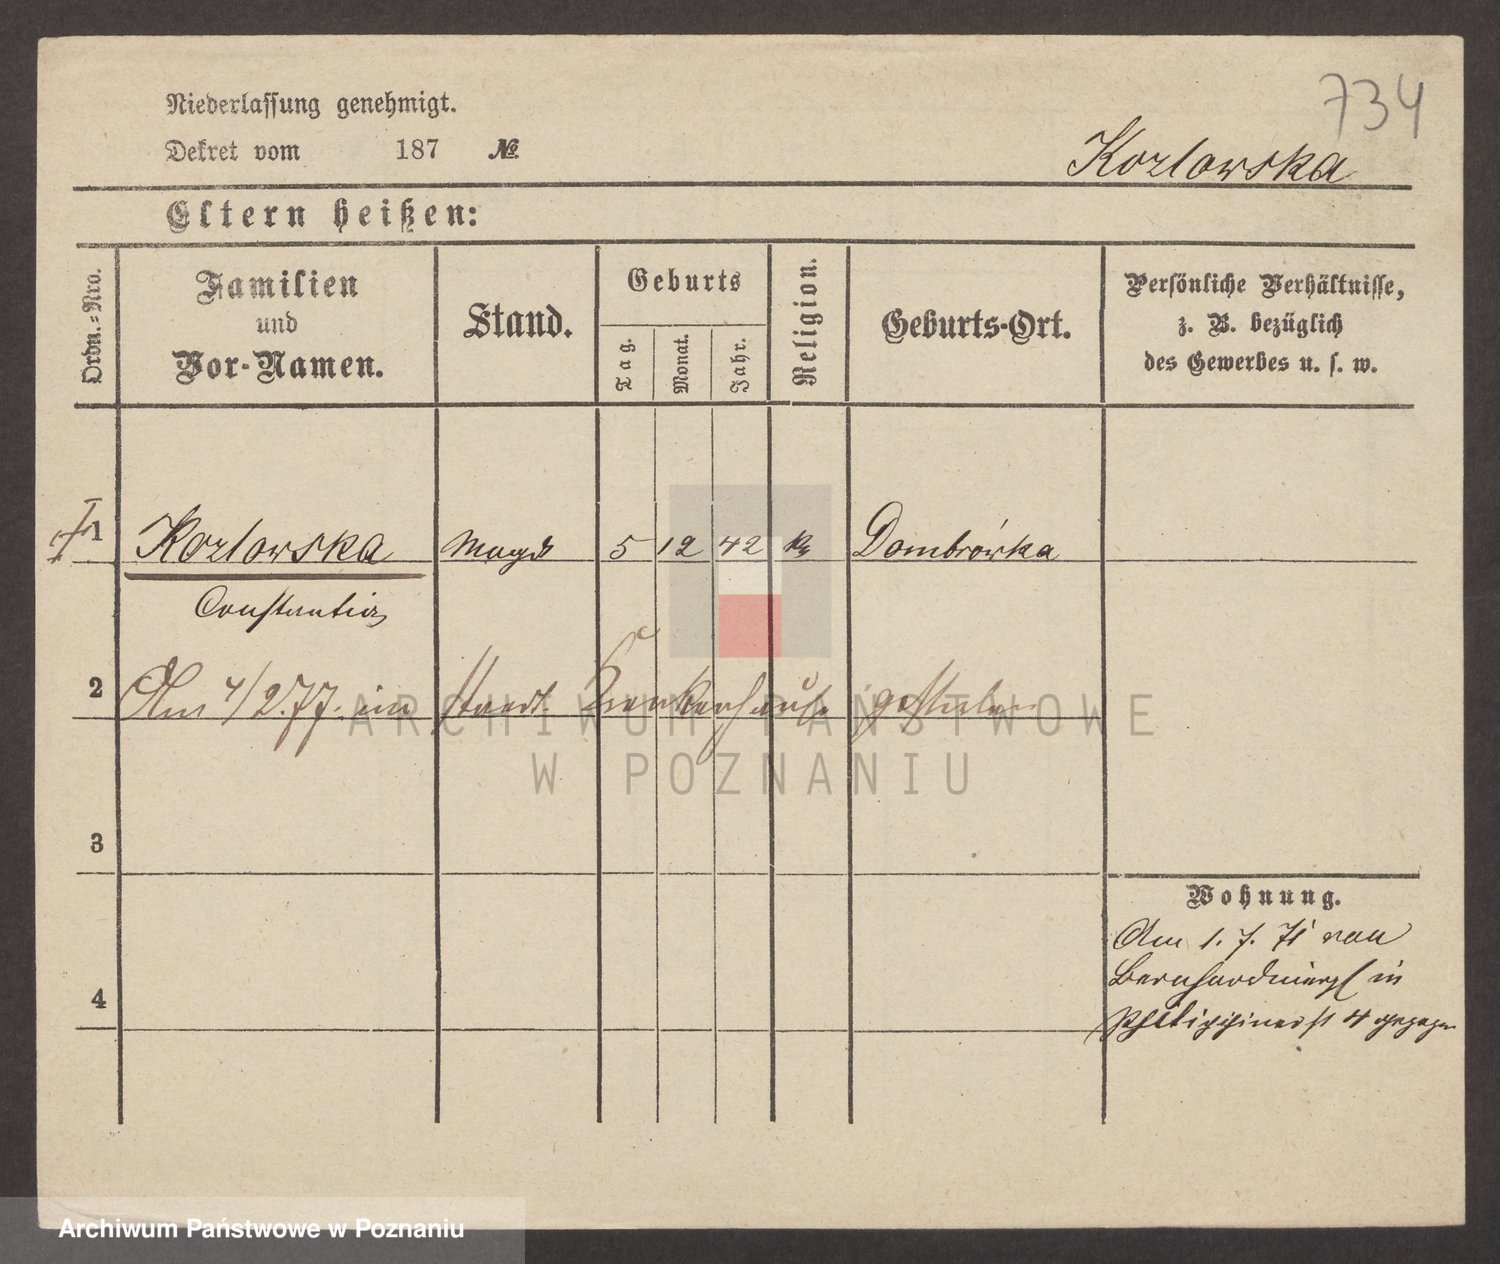 734
Niederlassung genehmigt.
Dekret vom 187 №
Kozlowska
Eltern heißen:
Ordn.-Nro.
Familien
und
Vor-Namen.
Stand.
Geburts
Tag.
Monat.
Jahr.
Religion.
Geburts-Ort.
Persönliche Verhältnisse,
z. B. bezüglich
des Gewerbes u. s. w.
1 Kozlowska Magd 5 12 42 Dombrówka
Constantia
2 Am 4/2.77. im Stadt. Krankenhause gestorben
ARCHIWUM PAŃSTWOWE
W POZNANIU
3
Wohnung.
Am 1. 7. 71 von
in
4
Philippinerst 4
Archiwum Państwowe w Poznaniu